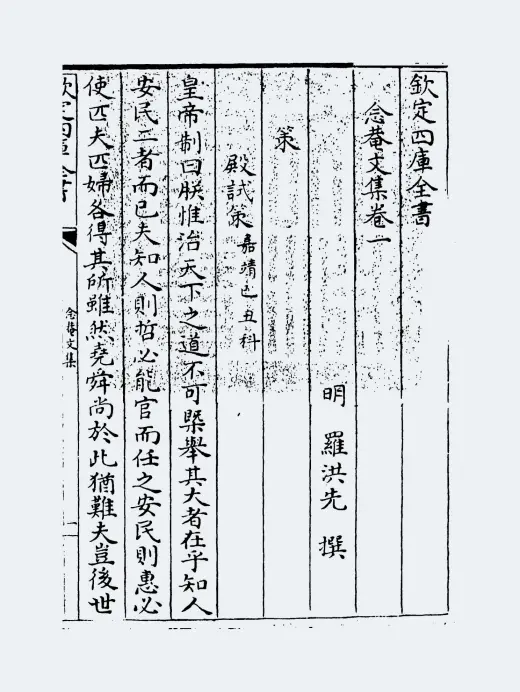 欽定四庫全書
念菴文集卷一
明 羅洪先 撰
策
殿試策嘉靖己丑科
皇帝制曰朕惟治天下之道不可槩舉其大者在乎知人
安民二者而已夫知人則哲必能官而任之安民則惠必
使匹夫匹婦各得其所雖然堯舜尚於此猶難夫豈後世
欽定四庫全書
念菴文集
一